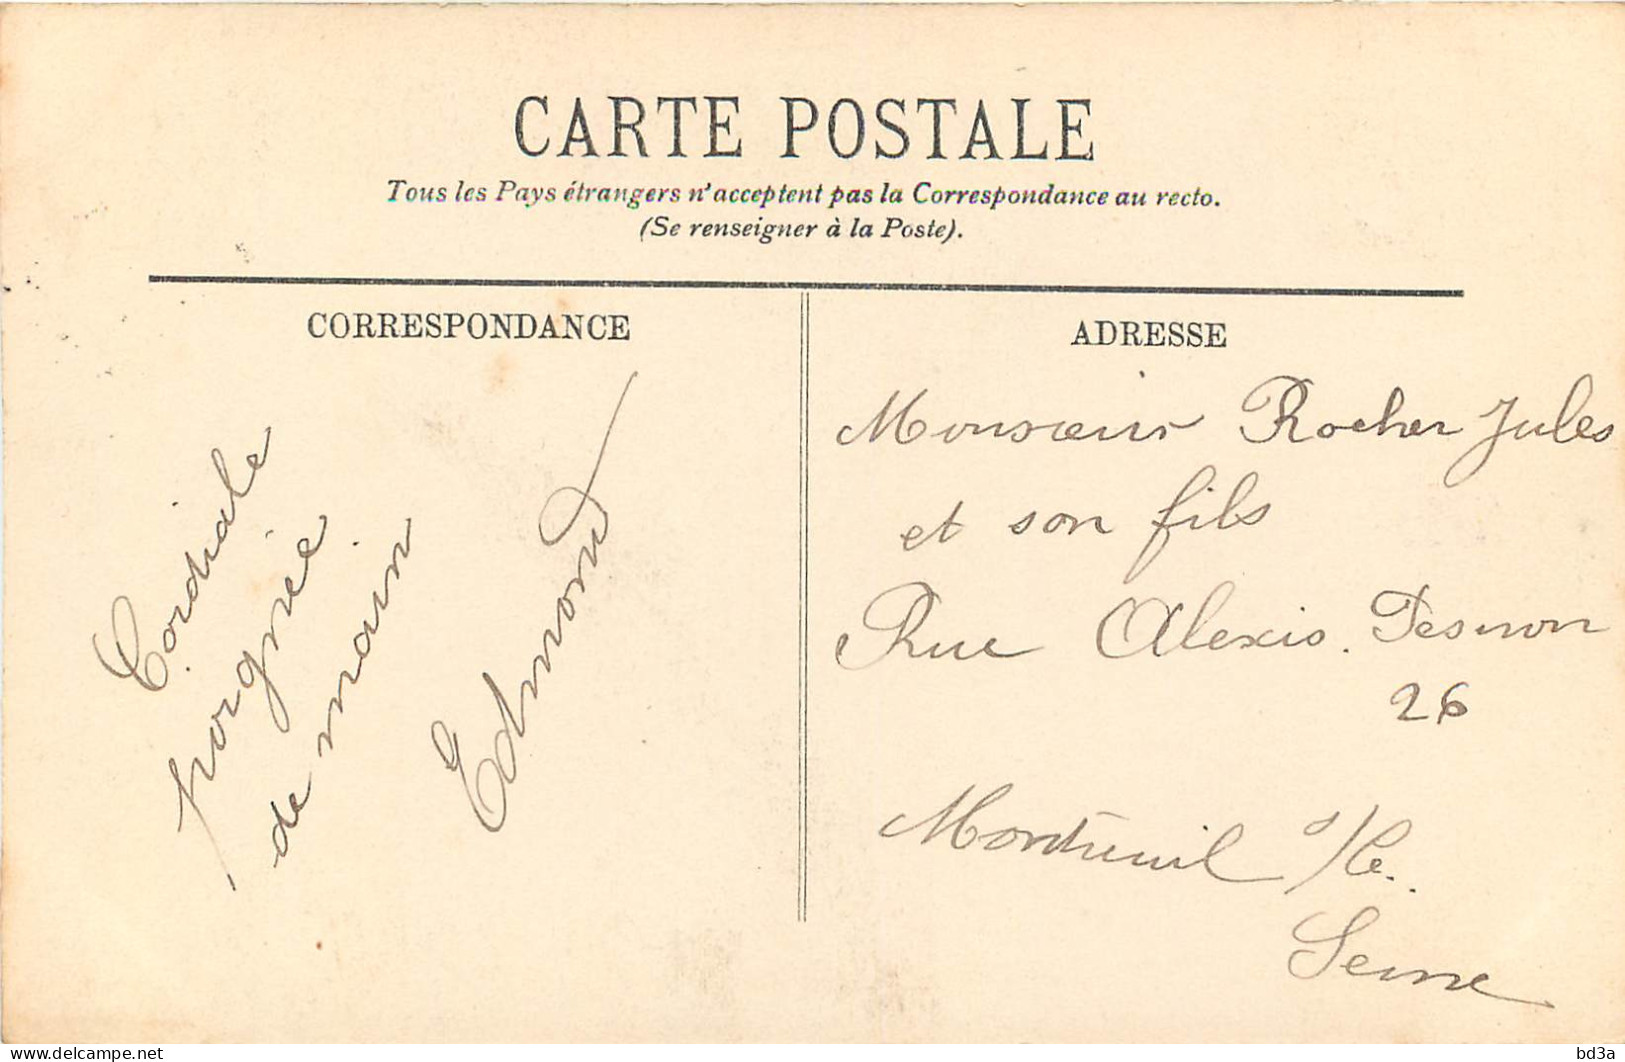 CARTE POSTALE
Tous les Pays étrangers n'acceptent pas la Correspondance au recto.
(Se renseigner à la Poste).
CORRESPONDANCE
Cordiale
poignée
de main
Edmond
ADRESSE
Monsieur Rocher Jules
et son fils
Rue Alexis Pesnon
26
Montreuil s/B.
Seine
delcampe.net
bd3a